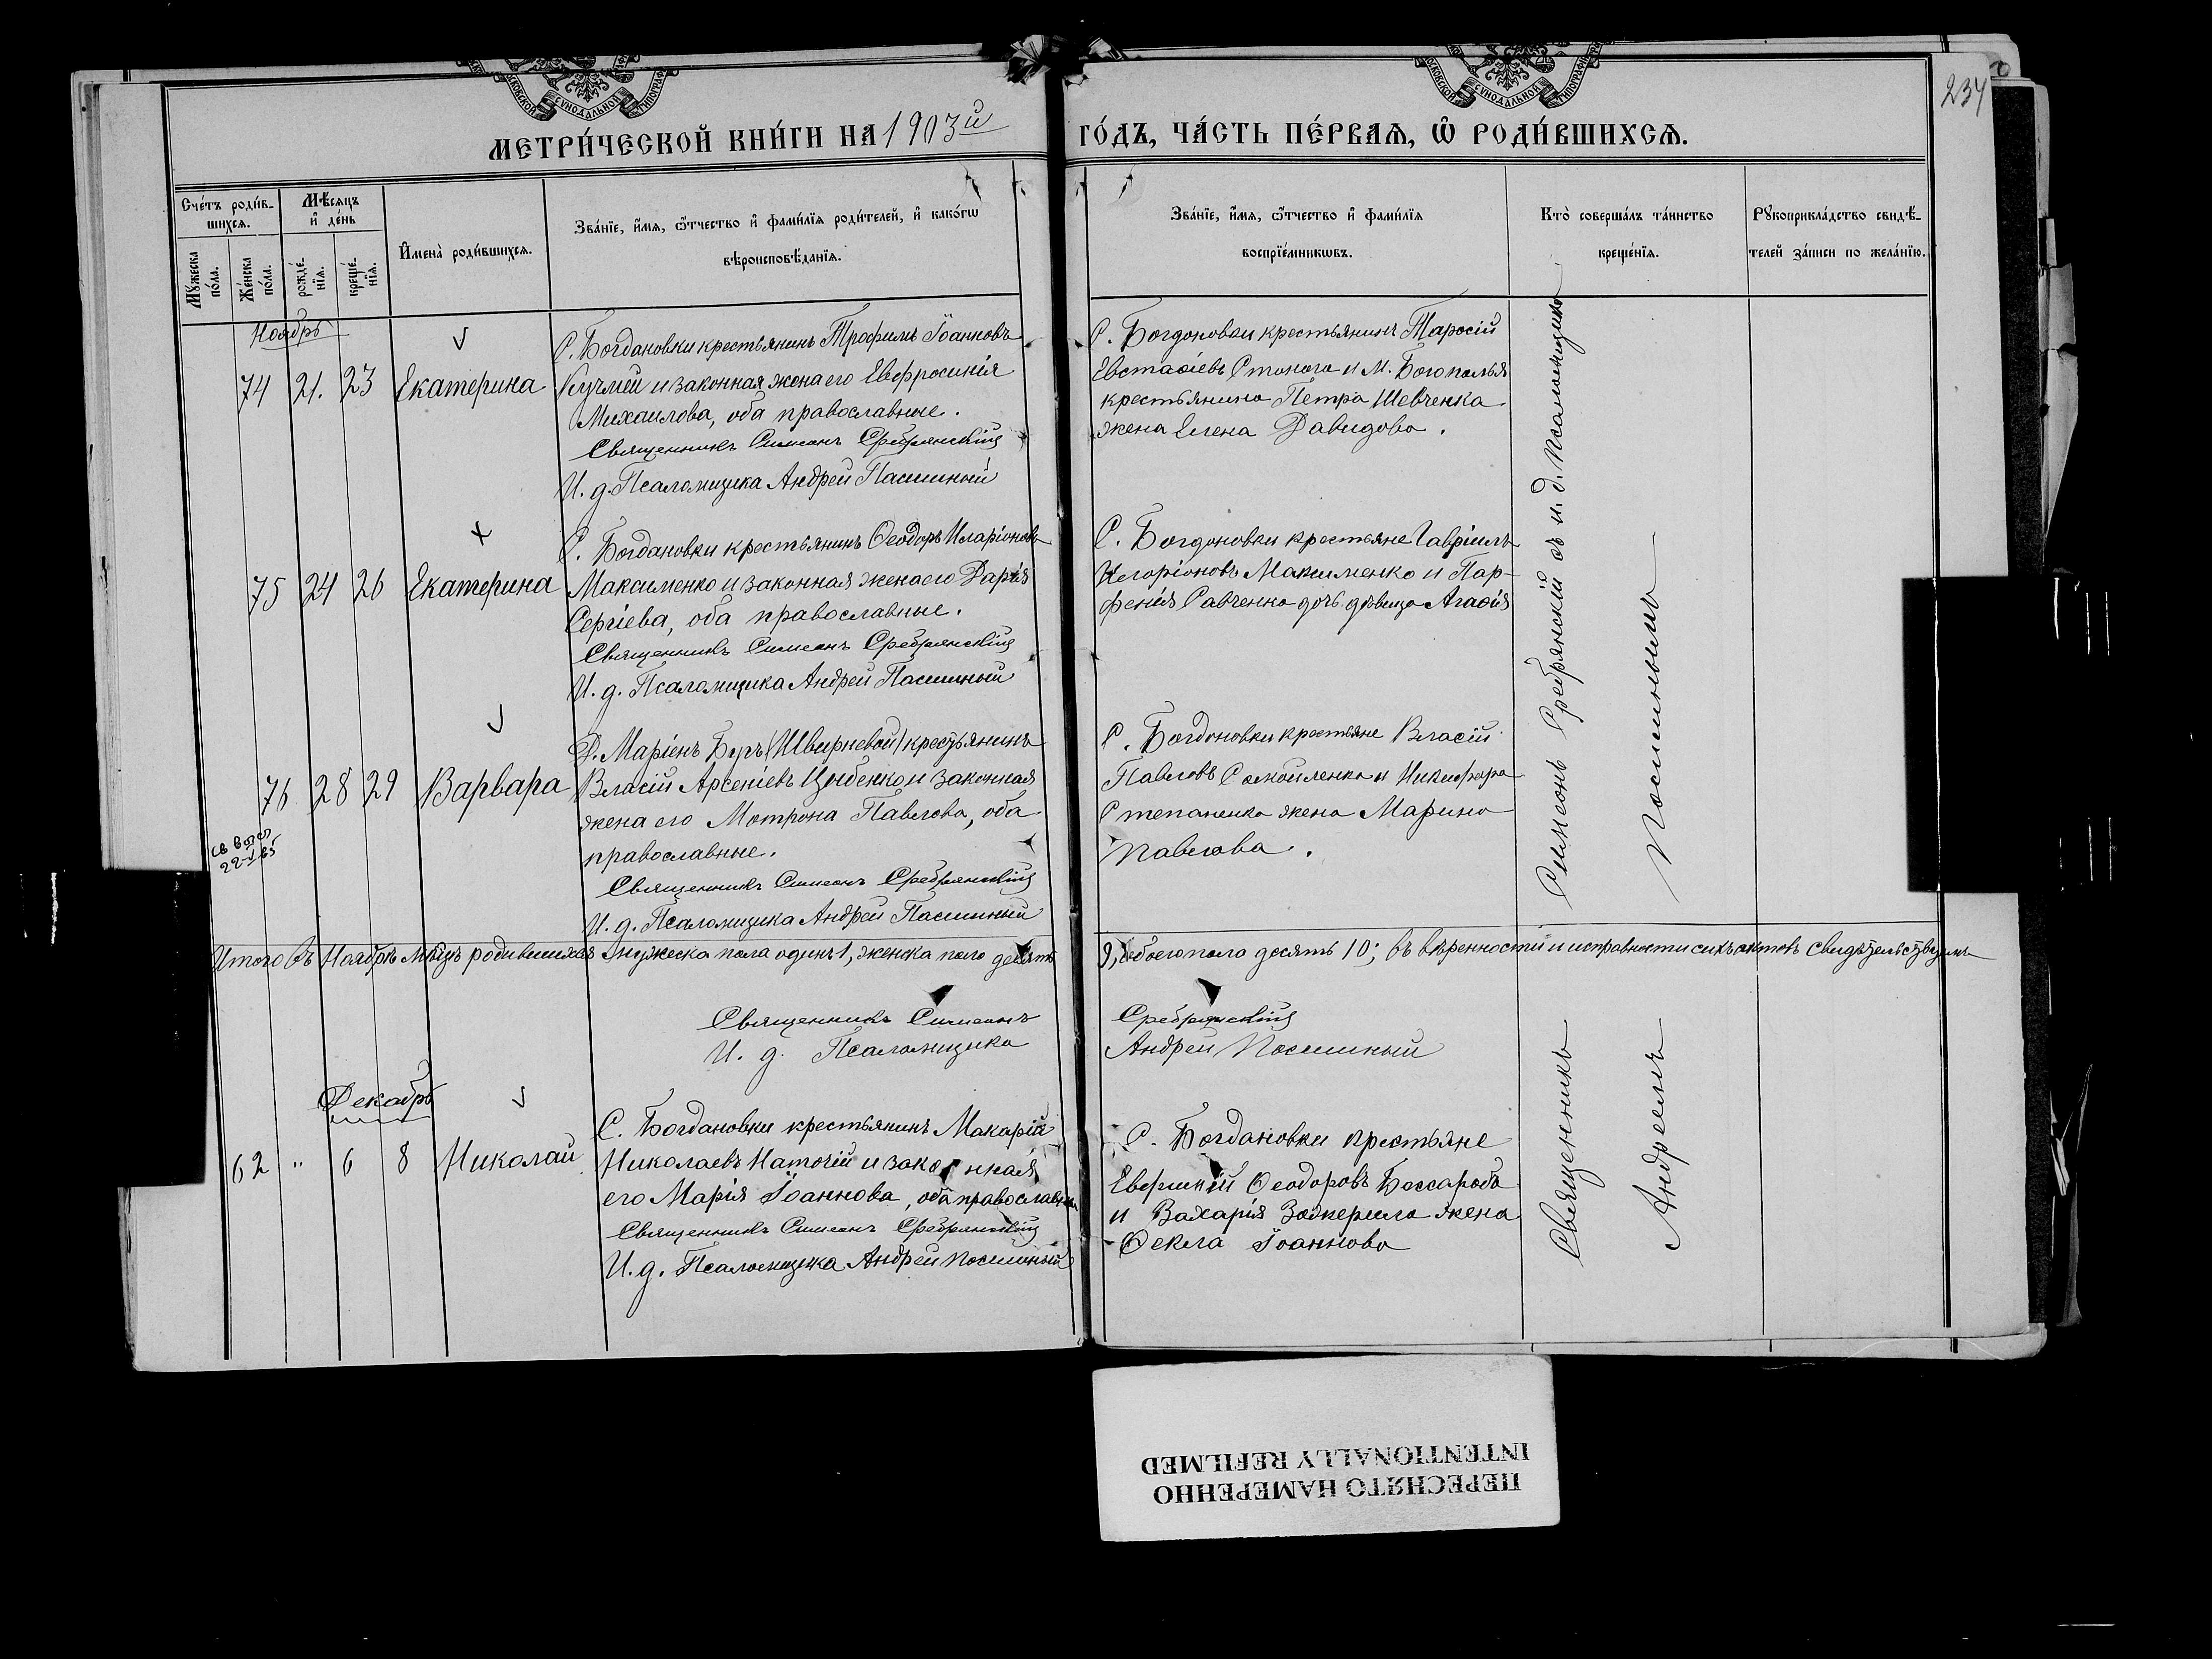 МЕТРИ́ЧЕСКОЙ КНИ́ГИ НА 1903й ГО́ДЪ, ЧА́СТЬ ПЕ́РВАѦ, Ѡ РОДИ́ВШИХСѦ.
234
Сче́тъ роди́в-
шихсѧ.
Мѣ́сѧцъ
и де́нь
Мꙋ́жеска
по́ла.
Же́нска
по́ла.
рожде́-
нїѧ.
креще́-
нїѧ.
Имена̀ роди́вшихсѧ.
Зва́нїе, и́мѧ, ѻ҆́тчество и҆ фами́лїѧ роди́телей, и҆ како́гѡ
вѣроисповѣ́данїѧ.
Зва́нїе, и́мѧ, ѻ҆́тчество и҆ фами́лїѧ
воспрїе́мникѡвъ.
Кто̀ соверша́лъ та́инство
креще́нїѧ.
Рꙋкоприкла́дство свидѣ́-
телей за́писи по жела́нїю.
Ноябрь
74 21. 23 Екатерина
С. Богдановки крестьянинъ Трофимъ Іоанновъ
Кучмій и законная жена его Евфросинія
Михаилова, оба православные.
Священникъ Симеонъ Сребрянскій
И. д. Псаломщика Андрей Пасишный
С. Богдановки крестьянинъ Тарасій
Евстафіевъ и М. Богополья
крестьянина Петра Шевченка
жена Елена Давидова.
75 24 26 Екатерина
С. Богдановки крестьянинъ Ѳеодоръ Иларіоновъ
Максименко и законная жена его Дарія
Сергіева, оба православные.
Священникъ Симеонъ Сребрянскій
И. д. Псаломщика Андрей Пасишный
С. Богдановки крестьяне Гавріилъ
Иларіоновъ Максименко и Пар-
фенія Савченка дочь дѣвица Агафія
76 28 29 Варвара
22-I 65
Д. Маріенъ Буръ (Швирневой) крестьянинъ
Власій Арсеніевъ Цыбенко и законная
жена его Матрона Павлова, оба
православные.
Священникъ Симеонъ Сребрянскій
И. д. Псаломщика Андрей Пасишный
С. Богдановки крестьяне Власій
Павловъ Самойленко и Никифора
Степаненка жена Марина
Павлова.
Итого въ Ноябрѣ м-цѣ родившихся мужеска пола одинъ 1, женска пола девять 9, обоего пола десять 10; въ вѣренности и исправности сихъ актовъ свидѣтельствуемъ
Священникъ Симеонъ Сребрянскій
И. д. Псаломщика Андрей Пасишный
Декабрь
62 " 6 8 Николай
С. Богдановки крестьянинъ Макарій
Николаевъ Наточій и законная
его Марія Іоаннова, оба православны
Священникъ Симеонъ Сребрянскій
И. д. Псаломщика Андрей Пасишный
С. Богдановки крестьяне
Ѳеодоровъ Бассарабъ
и Захарія жена
Ѳекла Іоаннова
Священникъ Симеонъ Сребрянскій съ и. д. Псаломщика
Андреемъ Пасишнымъ
ПЕРЕСНЯТО НАМЕРЕННО
INTENTIONALLY REFILMED